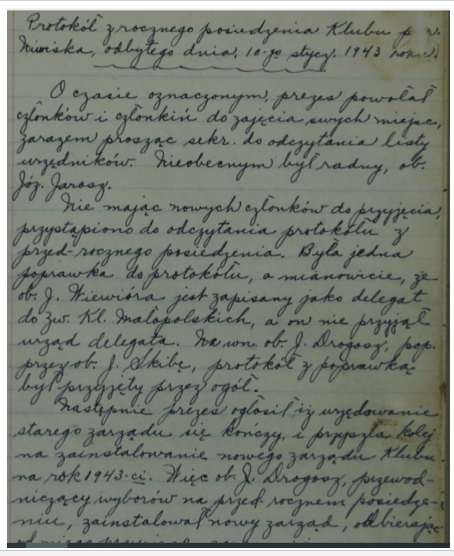 Protokół z rocznego posiedzenia Klubu p
Niwiska, odbytego dnia, 10-go stycz. 1943 roku.
O czasie oznaczonym, prezes powołał
członków i członkiń do zajęcia swych miejsc,
zarazem prosząc sekr. do odczytania listy
urzędników. Nieobecnym był radny, ob.
Józ. Jarosz.
Nie mając nowych członków do przyjęcia,
przystąpiono do odczytania protokółu z
przed-rocznego posiedzenia. Była jedna
poprawka do protokółu, a mianowicie, że
ob. J. Wiewióra jest zapisany jako delegat
do Zw. Kl. Małopolskich, a on nie przyjął
urząd delegata. Na wn. ob. J. Drogosz, pop.
przez ob. J. Skibę, protokół z poprawką
był przyjęty przez ogół.
Następnie prezes ogłosił iż urzędowanie
starego zarządu się kończy, i przyszła kolej
na zainstalowanie nowego zarządu Klubu
na rok 1943-ci. Więc ob. J. Drogosz, przewod-
niczący wyborów na przed rocznem posiedze-
niu, zainstalował nowy zarząd, odbierając